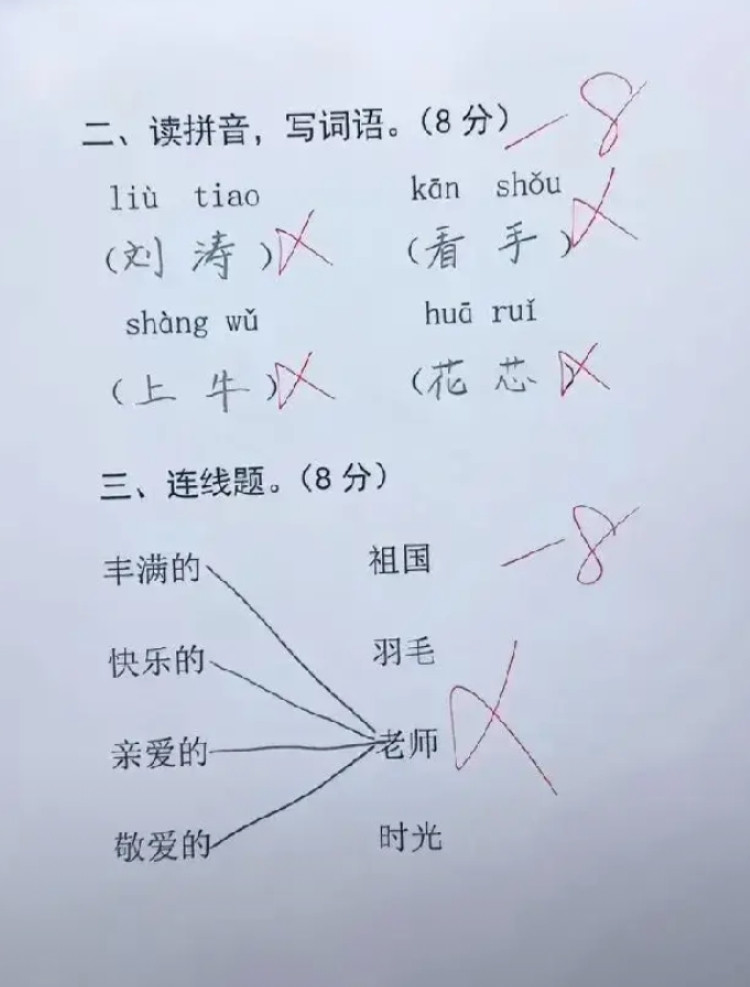 二、读拼音，写词语。（8 分） －8
liù tiao kān shǒu
（刘 涛） （看 手）
shàng wǔ huā ruǐ
（上 牛） （花 芯）
三、连线题。（8 分）
－8
丰满的 祖国
快乐的 羽毛
亲爱的 老师
敬爱的 时光